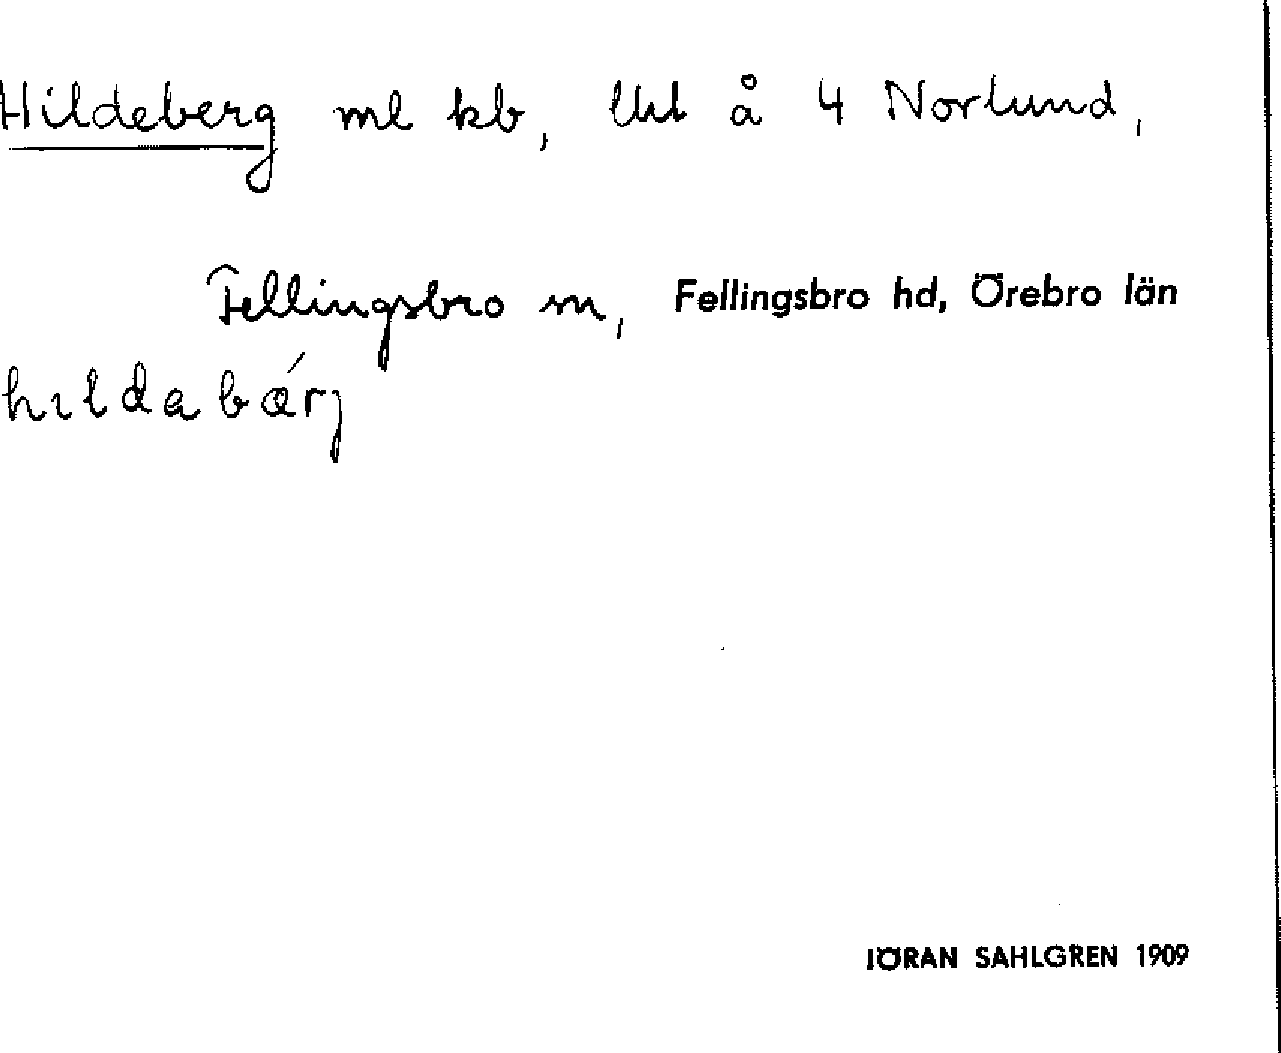 Hildeberg ml kb, Uht å 4 Norlund,
Fellingsbro sn, Fellingsbro hd, Örebro län
hıldabærj
JÖRAN SAHLGREN 1909